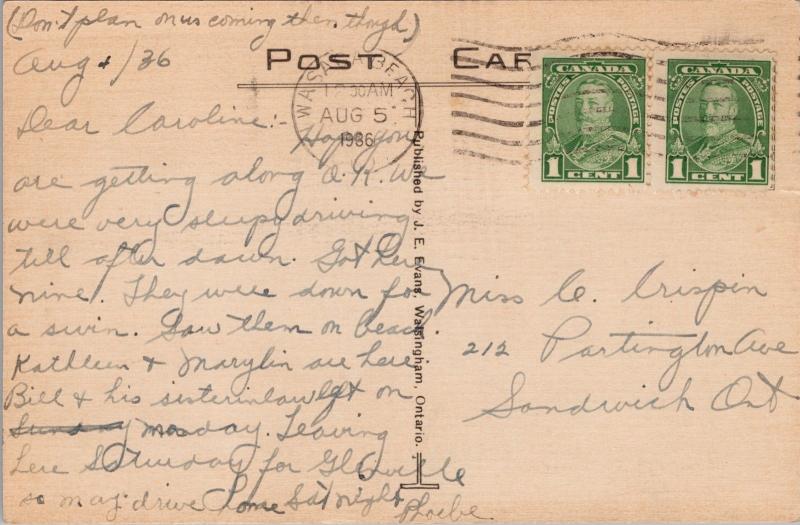 (Don't plan on us coming then though)
Aug 4/36
POST CAR
WASAGA BEACH
12 30 AM
AUG 5
1936
CANADA
POSTES POSTAGE
1 CENT 1
CANADA
POSTES POSTAGE
1 CENT 1
Dear Caroline:- Hope you
are getting along O.K. We
were very sleepy driving
till after dawn. Got here
nine. They were down for
a swim. Saw them on beach.
Kathleen & Marylin are here
Bill & his sisterinlaw left on
Sunday monday. Leaving
here Saturday for
so may drive home Sat night
Phoebe
Published by J. E. Evans, Walsingham, Ontario.
Miss C. Crispin
212 Partington Ave
Sandwich Ont